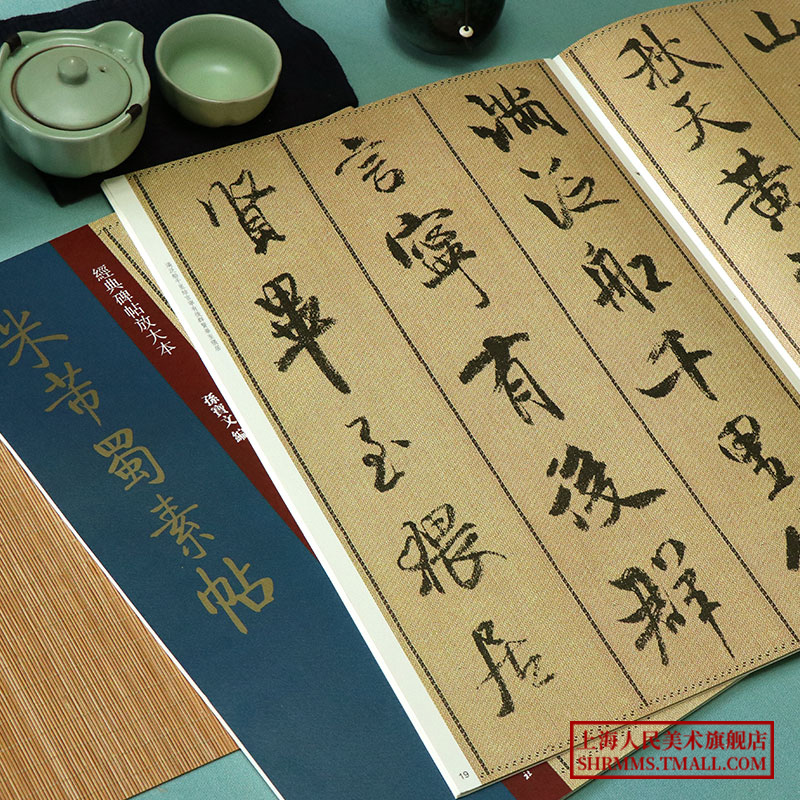 山
秋天黄
满泛船千里
言寧有後群
賢畢至猥居
19
經典碑帖放大本
孫寶文 編
米芾蜀素帖
上海人民美术旗舰店
SHRMMS.TMALL.COM